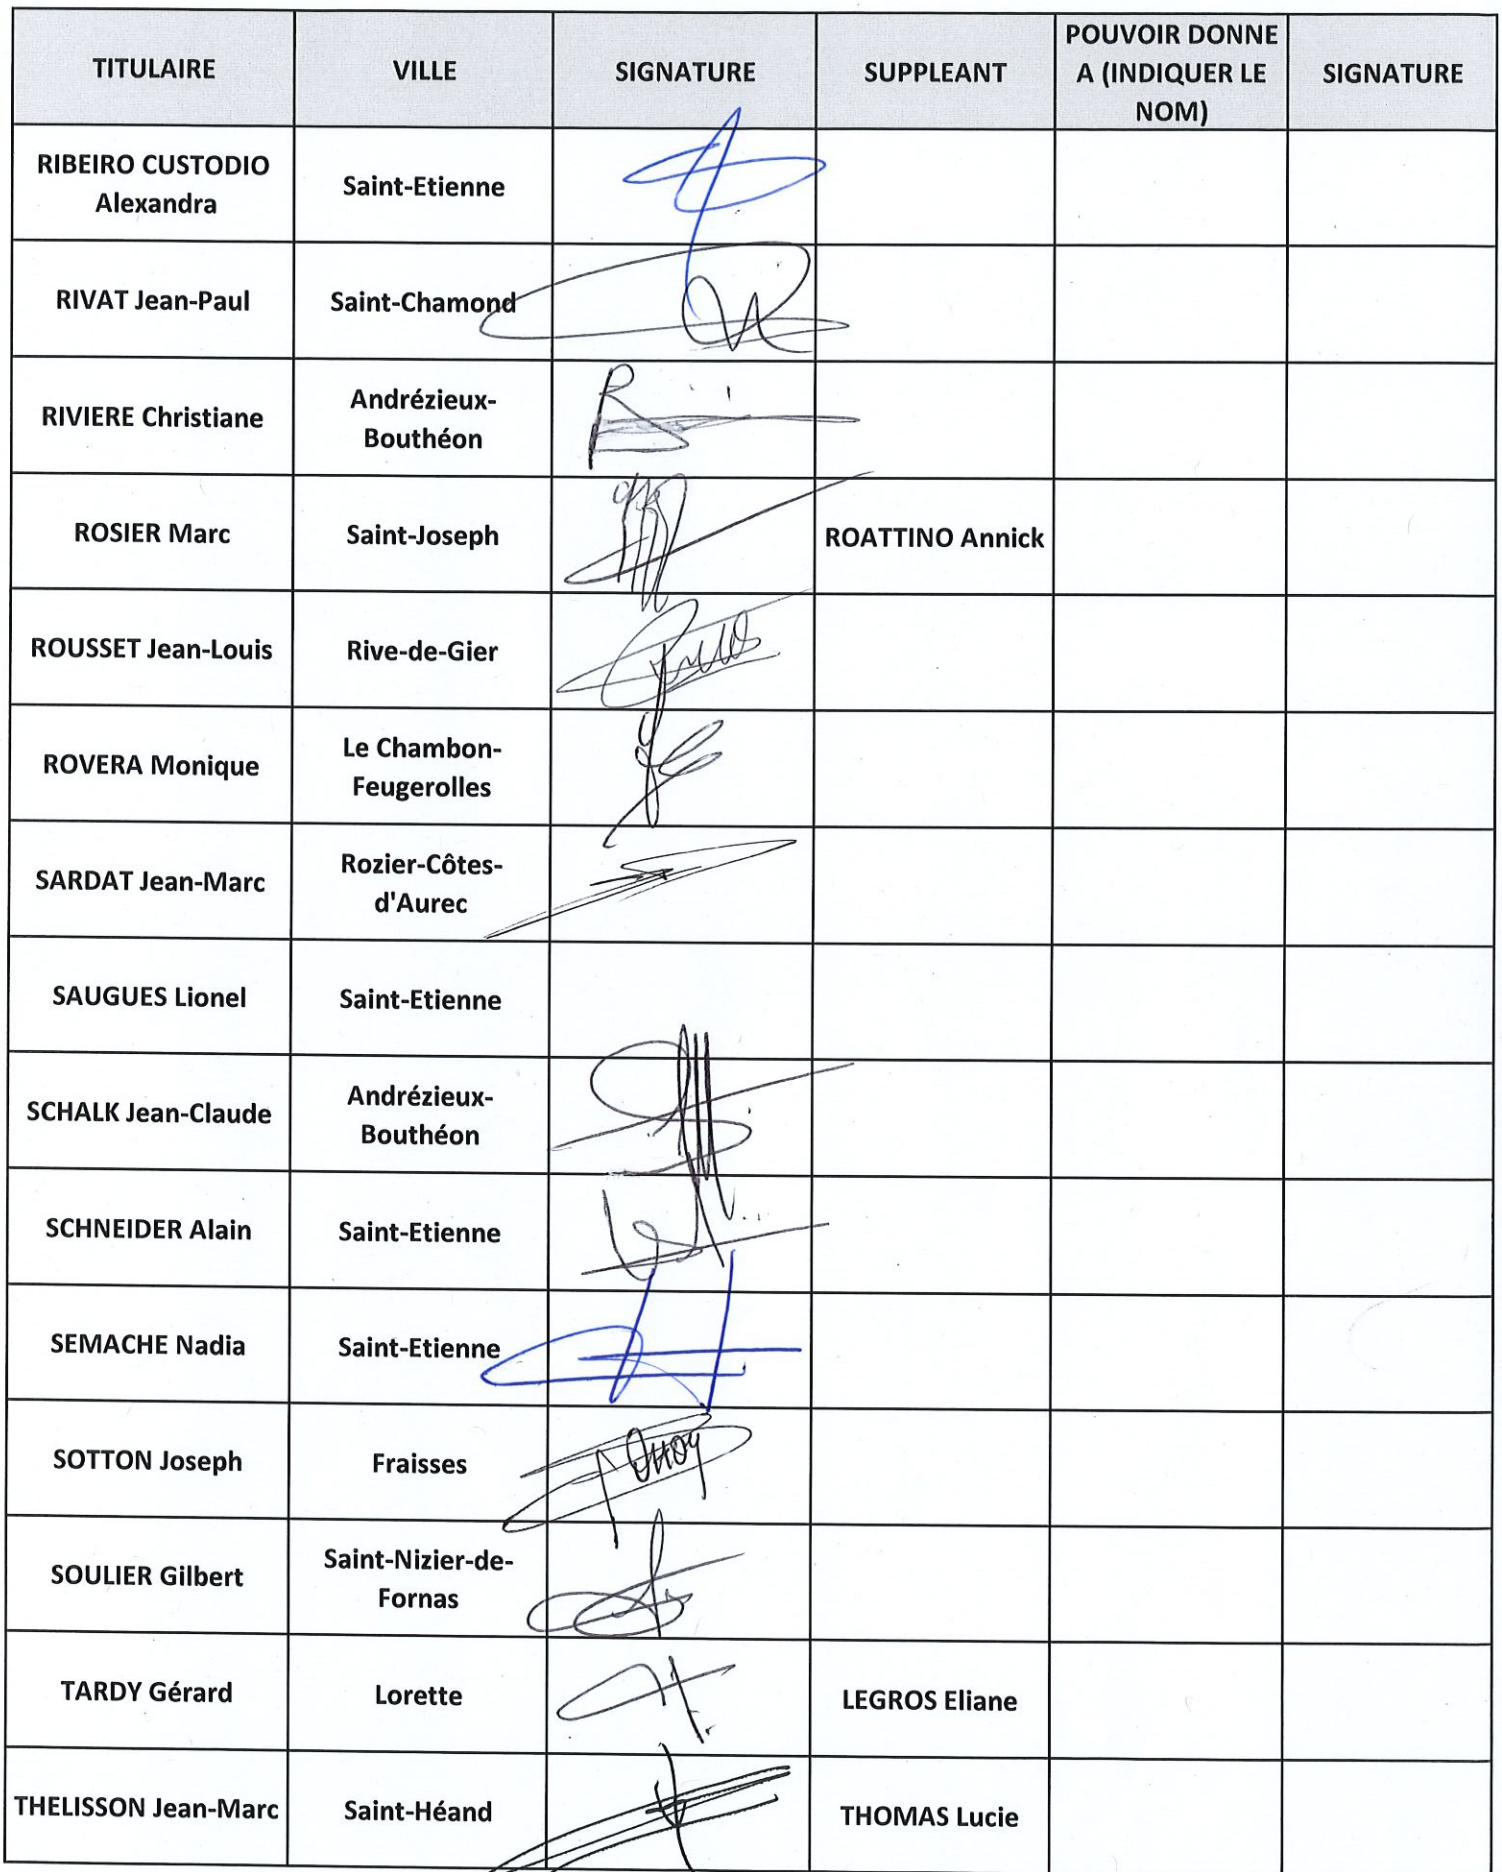 TITULAIRE
VILLE
SIGNATURE
SUPPLEANT
POUVOIR DONNE
A (INDIQUER LE
NOM)
SIGNATURE
RIBEIRO CUSTODIO
Alexandra
Saint-Etienne
RIVAT Jean-Paul
Saint-Chamond
RIVIERE Christiane
Andrézieux-
Bouthéon
ROSIER Marc
Saint-Joseph
ROATTINO Annick
ROUSSET Jean-Louis
Rive-de-Gier
ROVERA Monique
Le Chambon-
Feugerolles
SARDAT Jean-Marc
Rozier-Côtes-
d'Aurec
SAUGUES Lionel
Saint-Etienne
SCHALK Jean-Claude
Andrézieux-
Bouthéon
SCHNEIDER Alain
Saint-Etienne
SEMACHE Nadia
Saint-Etienne
SOTTON Joseph
Fraisses
SOULIER Gilbert
Saint-Nizier-de-
Fornas
TARDY Gérard
Lorette
LEGROS Eliane
THELISSON Jean-Marc
Saint-Héand
THOMAS Lucie